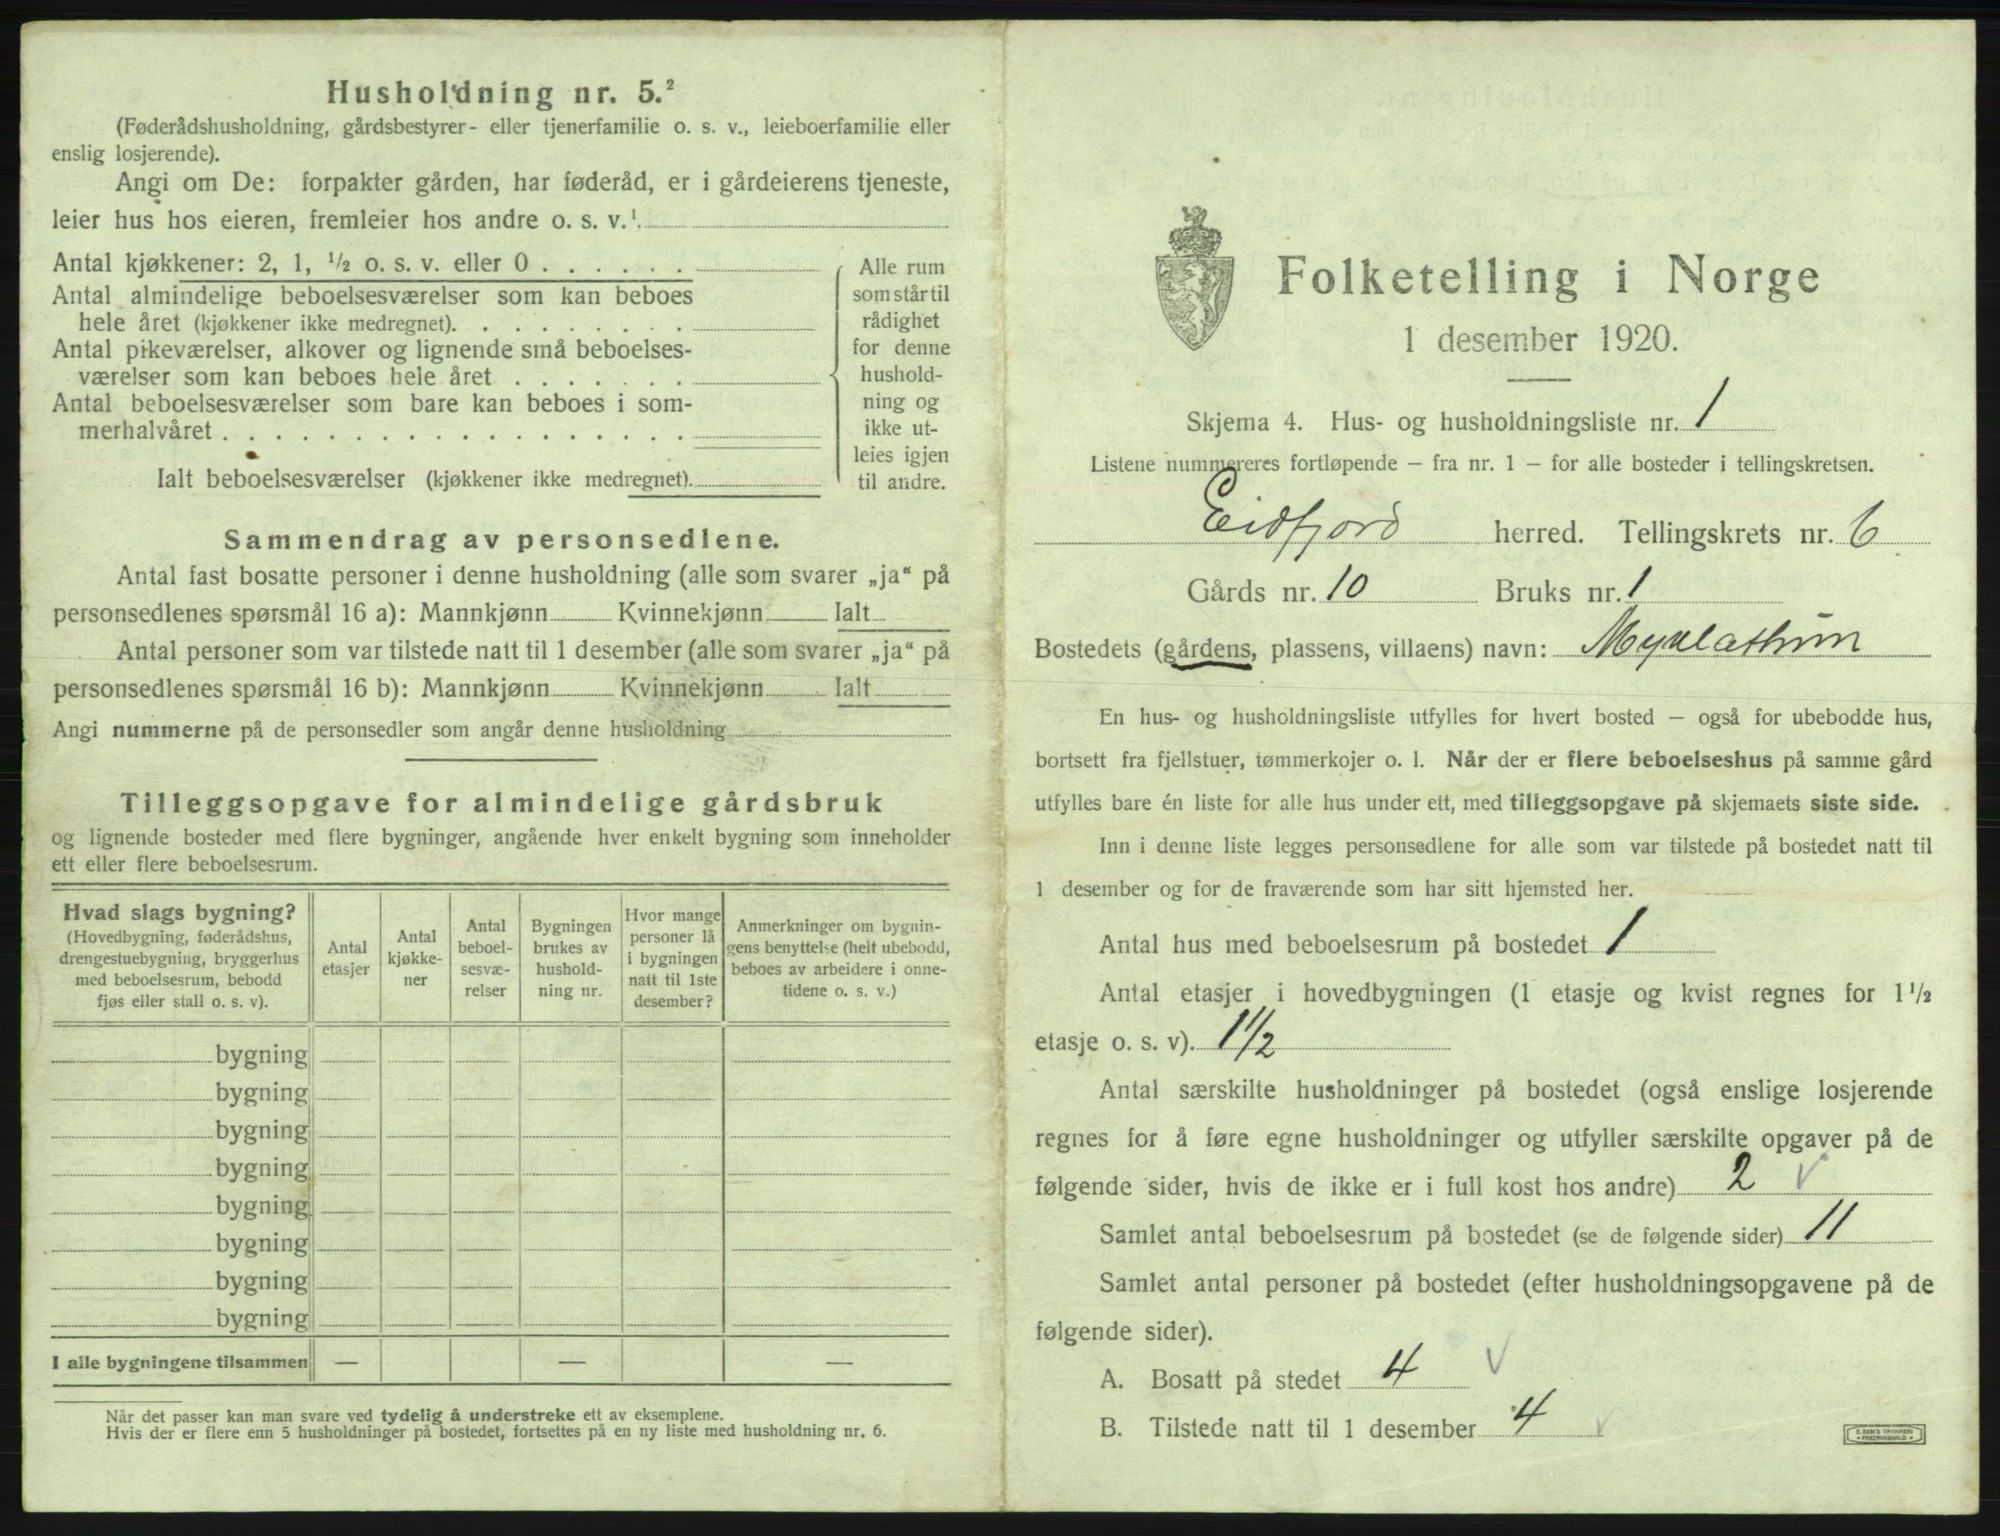 Husholdning nr. 5.²
(Føderådshusholdning, gårdsbestyrer- eller tjenerfamilie o. s. v., leieboerfamilie eller
enslig losjerende).
Angi om De: forpakter gården, har føderåd, er i gårdeierens tjeneste,
leier hus hos eieren, fremleier hos andre o. s. v.¹
Antal kjøkkener: 2, 1, ½ o. s. v. eller 0
Antal almindelige beboelsesværelser som kan beboes
hele året (kjøkkener ikke medregnet).
Antal pikeværelser, alkover og lignende små beboelses-
værelser som kan beboes hele året
Antal beboelsesværelser som bare kan beboes i som-
merhalvåret
Ialt beboelsesværelser (kjøkkener ikke medregnet).
Alle rum
som står til
rådighet
for denne
hushold-
ning og
ikke ut-
leies igjen
til andre.
Sammendrag av personsedlene.
Antal fast bosatte personer i denne husholdning (alle som svarer „ja“ på
personsedlenes spørsmål 16 a): Mannkjønn Kvinnekjønn Ialt
Antal personer som var tilstede natt til 1 desember (alle som svarer „ja“ på
personsedlenes spørsmål 16 b): Mannkjønn Kvinnekjønn Ialt
Angi nummerne på de personsedler som angår denne husholdning
Tilleggsopgave for almindelige gårdsbruk
og lignende bosteder med flere bygninger, angående hver enkelt bygning som inneholder
ett eller flere beboelsesrum.
Hvad slags bygning?
(Hovedbygning, føderådshus,
drengestuebygning, bryggerhus
med beboelsesrum, bebodd
fjøs eller stall o. s. v).
Antal
etasjer
Antal
kjøkke-
ner
Antal
beboel-
sesvæ-
relser
Bygningen
brukes av
hushold-
ning nr.
Hvor mange
personer lå
i bygningen
natt til 1ste
desember?
Anmerkninger om bygnin-
gens benyttelse (helt ubebodd,
beboes av arbeidere i onne-
tidene o. s. v.)
bygning
bygning
bygning
bygning
bygning
bygning
bygning
bygning
I alle bygningene tilsammen — — —
Når det passer kan man svare ved tydelig å understreke ett av eksemplene.
Hvis der er flere enn 5 husholdninger på bostedet, fortsettes på en ny liste med husholdning nr. 6.
Folketelling i Norge
1 desember 1920.
Skjema 4. Hus- og husholdningsliste nr. 1
Listene nummereres fortløpende – fra nr. 1 – for alle bosteder i tellingskretsen.
Eidfjord herred. Tellingskrets nr. 6
Gårds nr. 10 Bruks nr. 1
Bostedets (gårdens, plassens, villaens) navn: Myklathun
En hus- og husholdningsliste utfylles for hvert bosted – også for ubebodde hus,
bortsett fra fjellstuer, tømmerkojer o. l. Når der er flere beboelseshus på samme gård
utfylles bare én liste for alle hus under ett, med tilleggsopgave på skjemaets siste side.
Inn i denne liste legges personsedlene for alle som var tilstede på bostedet natt til
1 desember og for de fraværende som har sitt hjemsted her.
Antal hus med beboelsesrum på bostedet 1
Antal etasjer i hovedbygningen (1 etasje og kvist regnes for 1½
etasje o. s. v). 1½
Antal særskilte husholdninger på bostedet (også enslige losjerende
regnes for å føre egne husholdninger og utfyller særskilte opgaver på de
følgende sider, hvis de ikke er i full kost hos andre) 2 √
Samlet antal beboelsesrum på bostedet (se de følgende sider) 11
Samlet antal personer på bostedet (efter husholdningsopgavene på de
følgende sider).
A. Bosatt på stedet 4 √
B. Tilstede natt til 1 desember 4 √
E. SEM'S TRYKKERI
FREDRIKSHALD